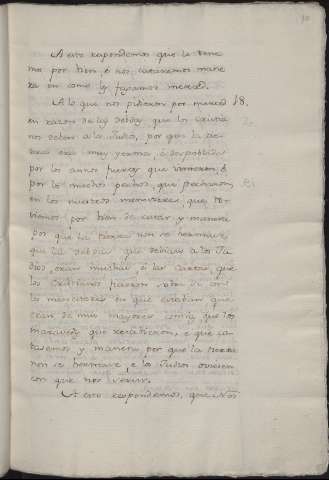 A esto respondemos que lo tene
mos por bien, e nos cataremos mane
ra en como les fagamos merced.
A lo que nos pidieron por merced 18.
en razon de las debdas que los cristia
nos deben a los Judios, por que la tie
rra era muy yerma, e despoblada
por los annos fuertes que vinieron, e
por los muchos pechos, que pecharon
en los nuestros menesteres, que to
viesemos por bien de catar y manera
por que la tierra non se hermase,
que las debdas que debian a los Ju
dios, eran muchas, e las cartas, que
los Cristianos ficieron sobre si con
los menesteres en que estaban que
eran de muy mayores contias que los
maravedis que recibieron, e que ca
tasemos y manera por que la tierra
non se hermase, e los Judios oviesen
con que nos servir.
A esto respondemos, que Nos